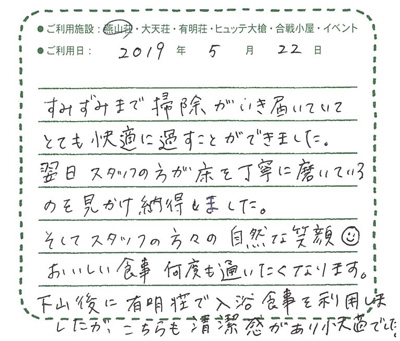 ●ご利用施設：燕山荘・大天荘・有明荘・ヒュッテ大槍・合戦小屋・イベント
●ご利用日： 2019 年 5 月 22 日
すみずみまで掃除がいき届いていて
とても快適に過すことができました。
翌日スタッフの方が床を丁寧に磨いている
のを見かけ納得しました。
そしてスタッフの方々の自然な笑顔
おいしい食事 何度も通いたくなります。
下山後に有明荘で入浴食事を利用しま
したが、こちらも清潔感があり快適でした